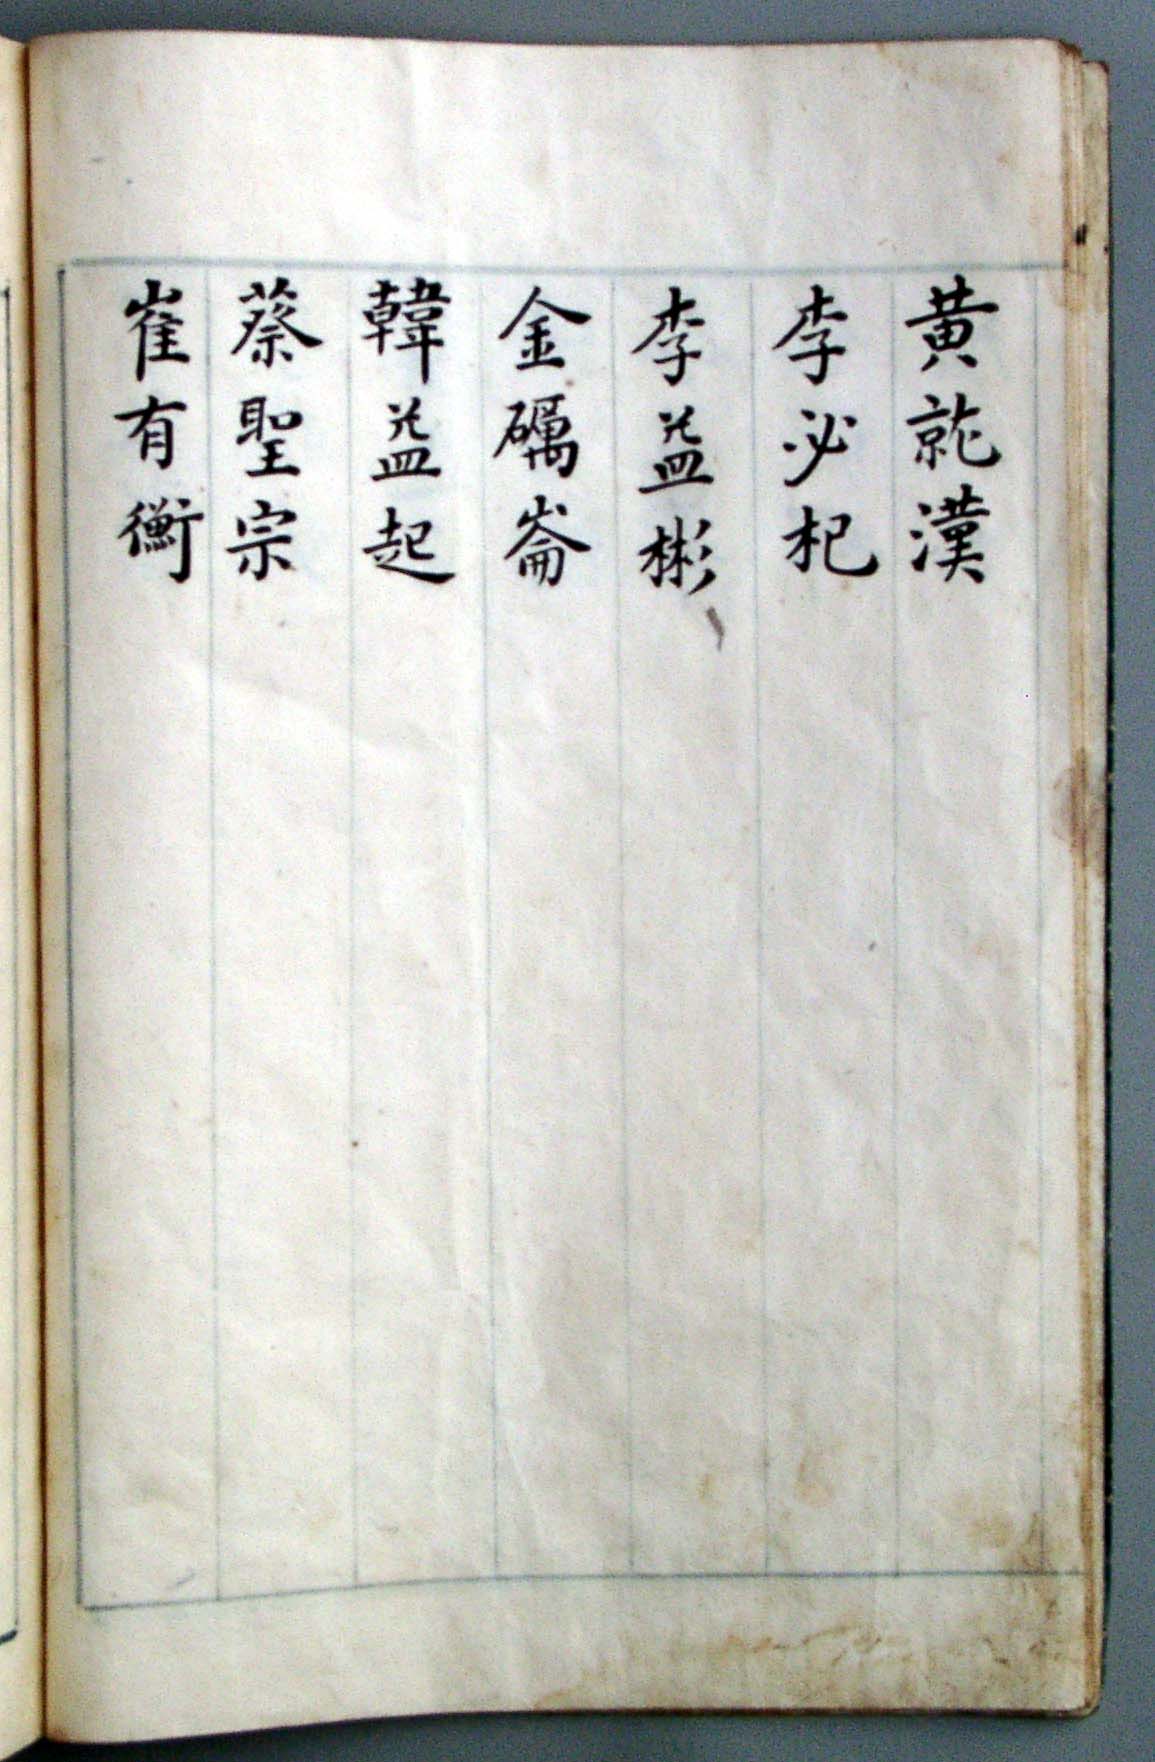 黃龍漢
李必杞
李益彬
金礪崙
韓益起
蔡聖宗
崔有衡